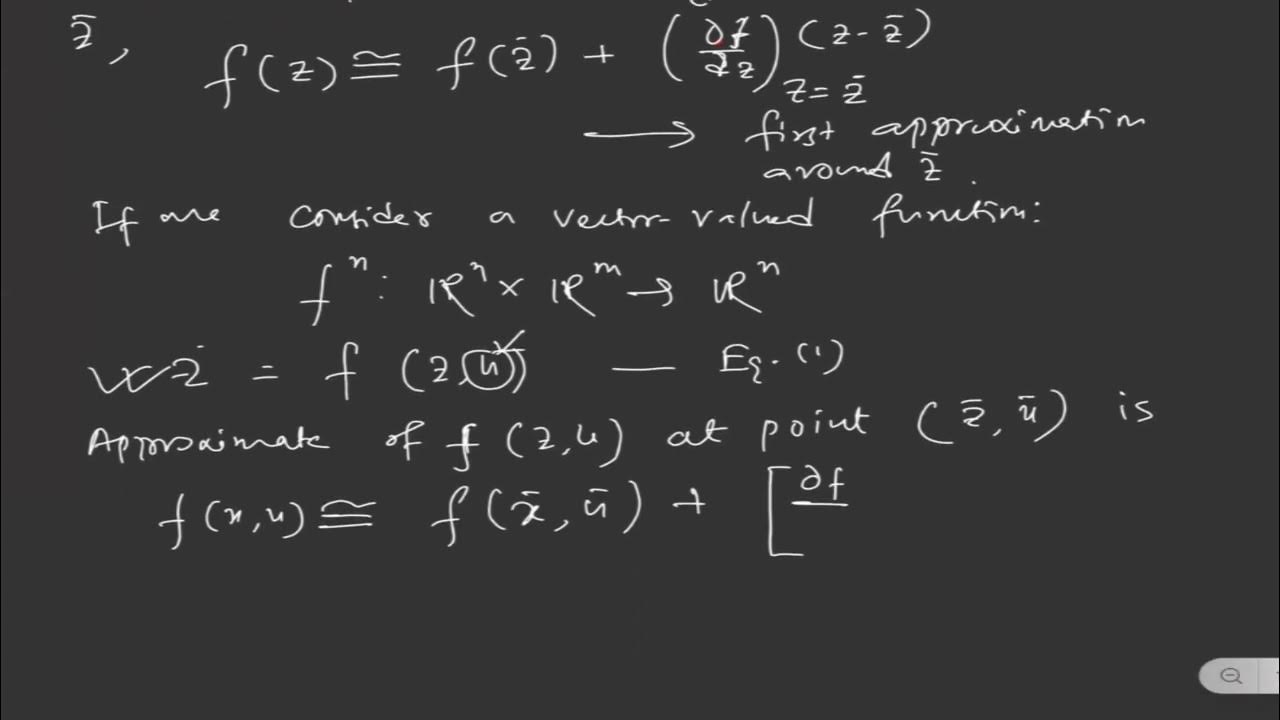 z̄, f(z) ≅ f(z̄) + (∂f/∂z)(z - z̄)
z = z̄
⟶ first approximation
around z̄.
If are consider a vector-valued function:
fⁿ: ℝⁿ × ℝᵐ → ℝⁿ
ż = f (z, u) — Eq. (1)
Approximate of f (z, u) at point (z̄, ū) is
f(x, u) ≅ f(x̄, ū) + [∂f